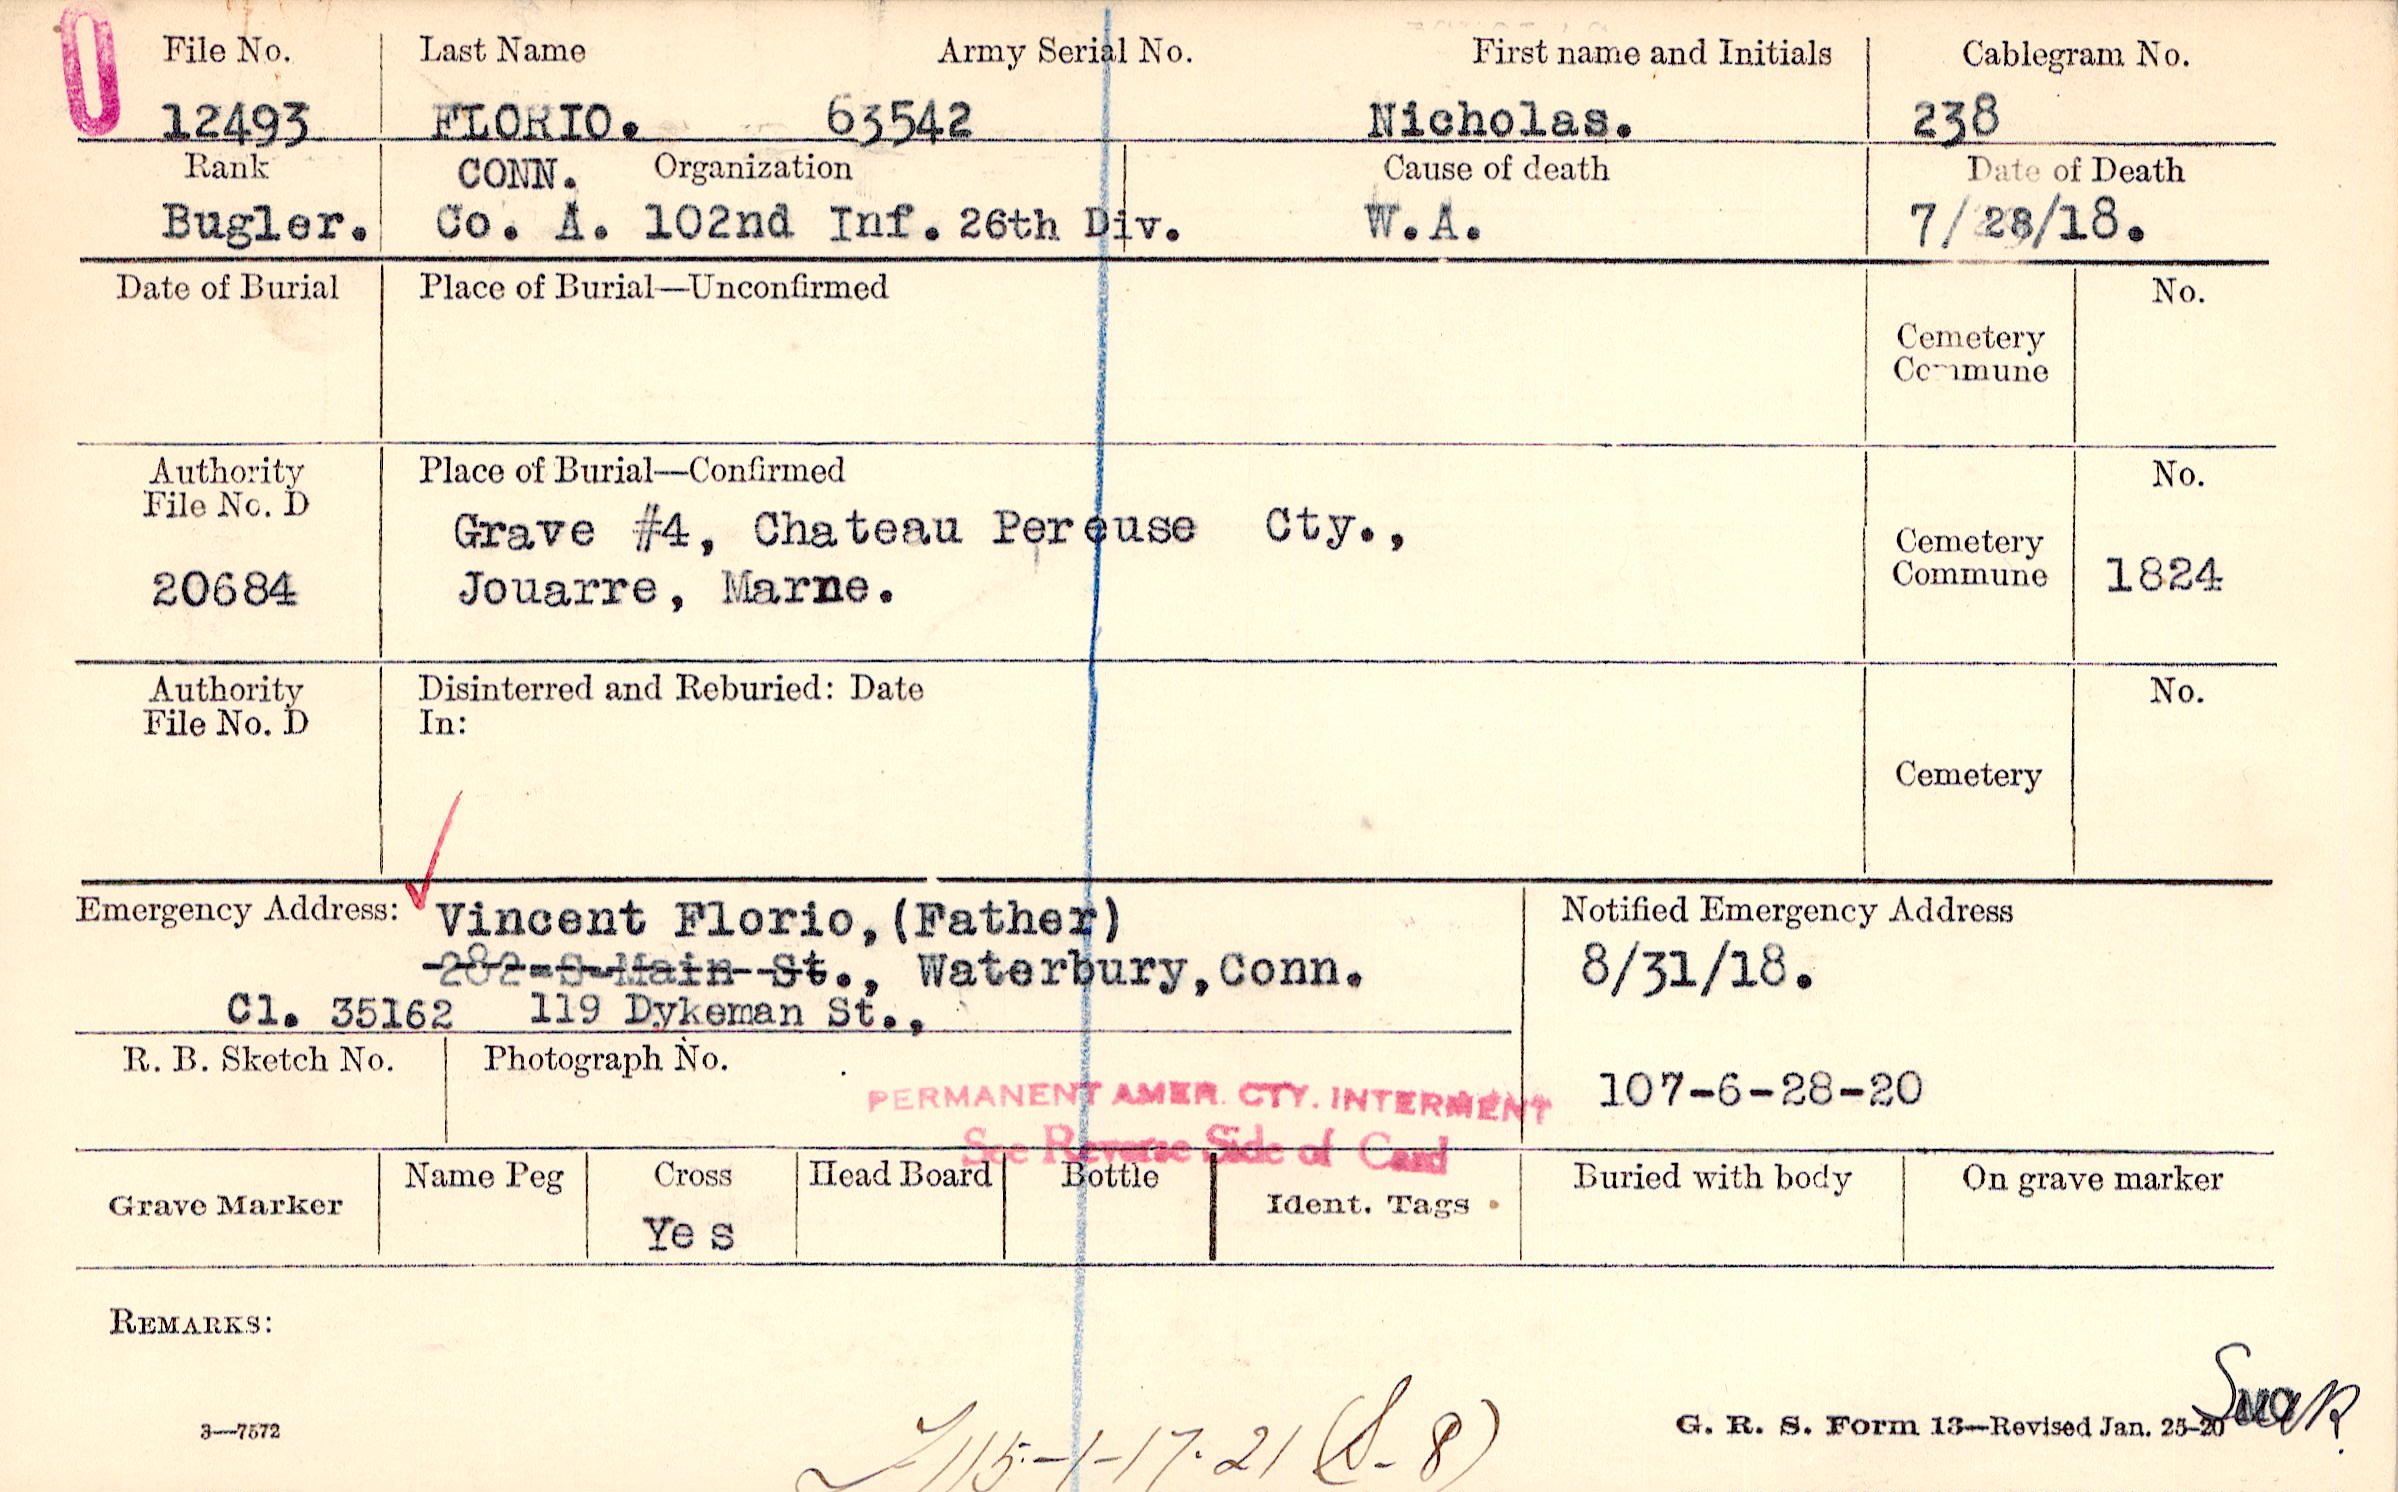 File No. Last Name Army Serial No. First name and Initials Cablegram No.
12493 FLORIO. 63542 Nicholas. 238
Rank CONN. Organization Cause of death Date of Death
Bugler. Co. A. 102nd Inf. 26th Div. W.A. 7/28/18.
Date of Burial Place of Burial—Unconfirmed No.
Cemetery
Commune
Authority Place of Burial—Confirmed No.
File No. D
Grave #4, Chateau Pereuse Cty.,
Cemetery
20684 Jouarre, Marne. Commune 1824
Authority Disinterred and Reburied: Date No.
File No. D In:
Cemetery
Emergency Address: Vincent Florio,(Father) Notified Emergency Address
282-S-Main-St., Waterbury,Conn. 8/31/18.
Cl. 35162 119 Dykeman St.,
R. B. Sketch No. Photograph No.
PERMANENT AMER. CTY. INTERMENT 107-6-28-20
See Reverse Side of Card
Grave Marker Name Peg Cross Head Board Bottle Ident. Tags Buried with body On grave marker
Yes
REMARKS:
3—7572 115-1-17-21 (S-8) G. R. S. Form 13—Revised Jan. 25-20